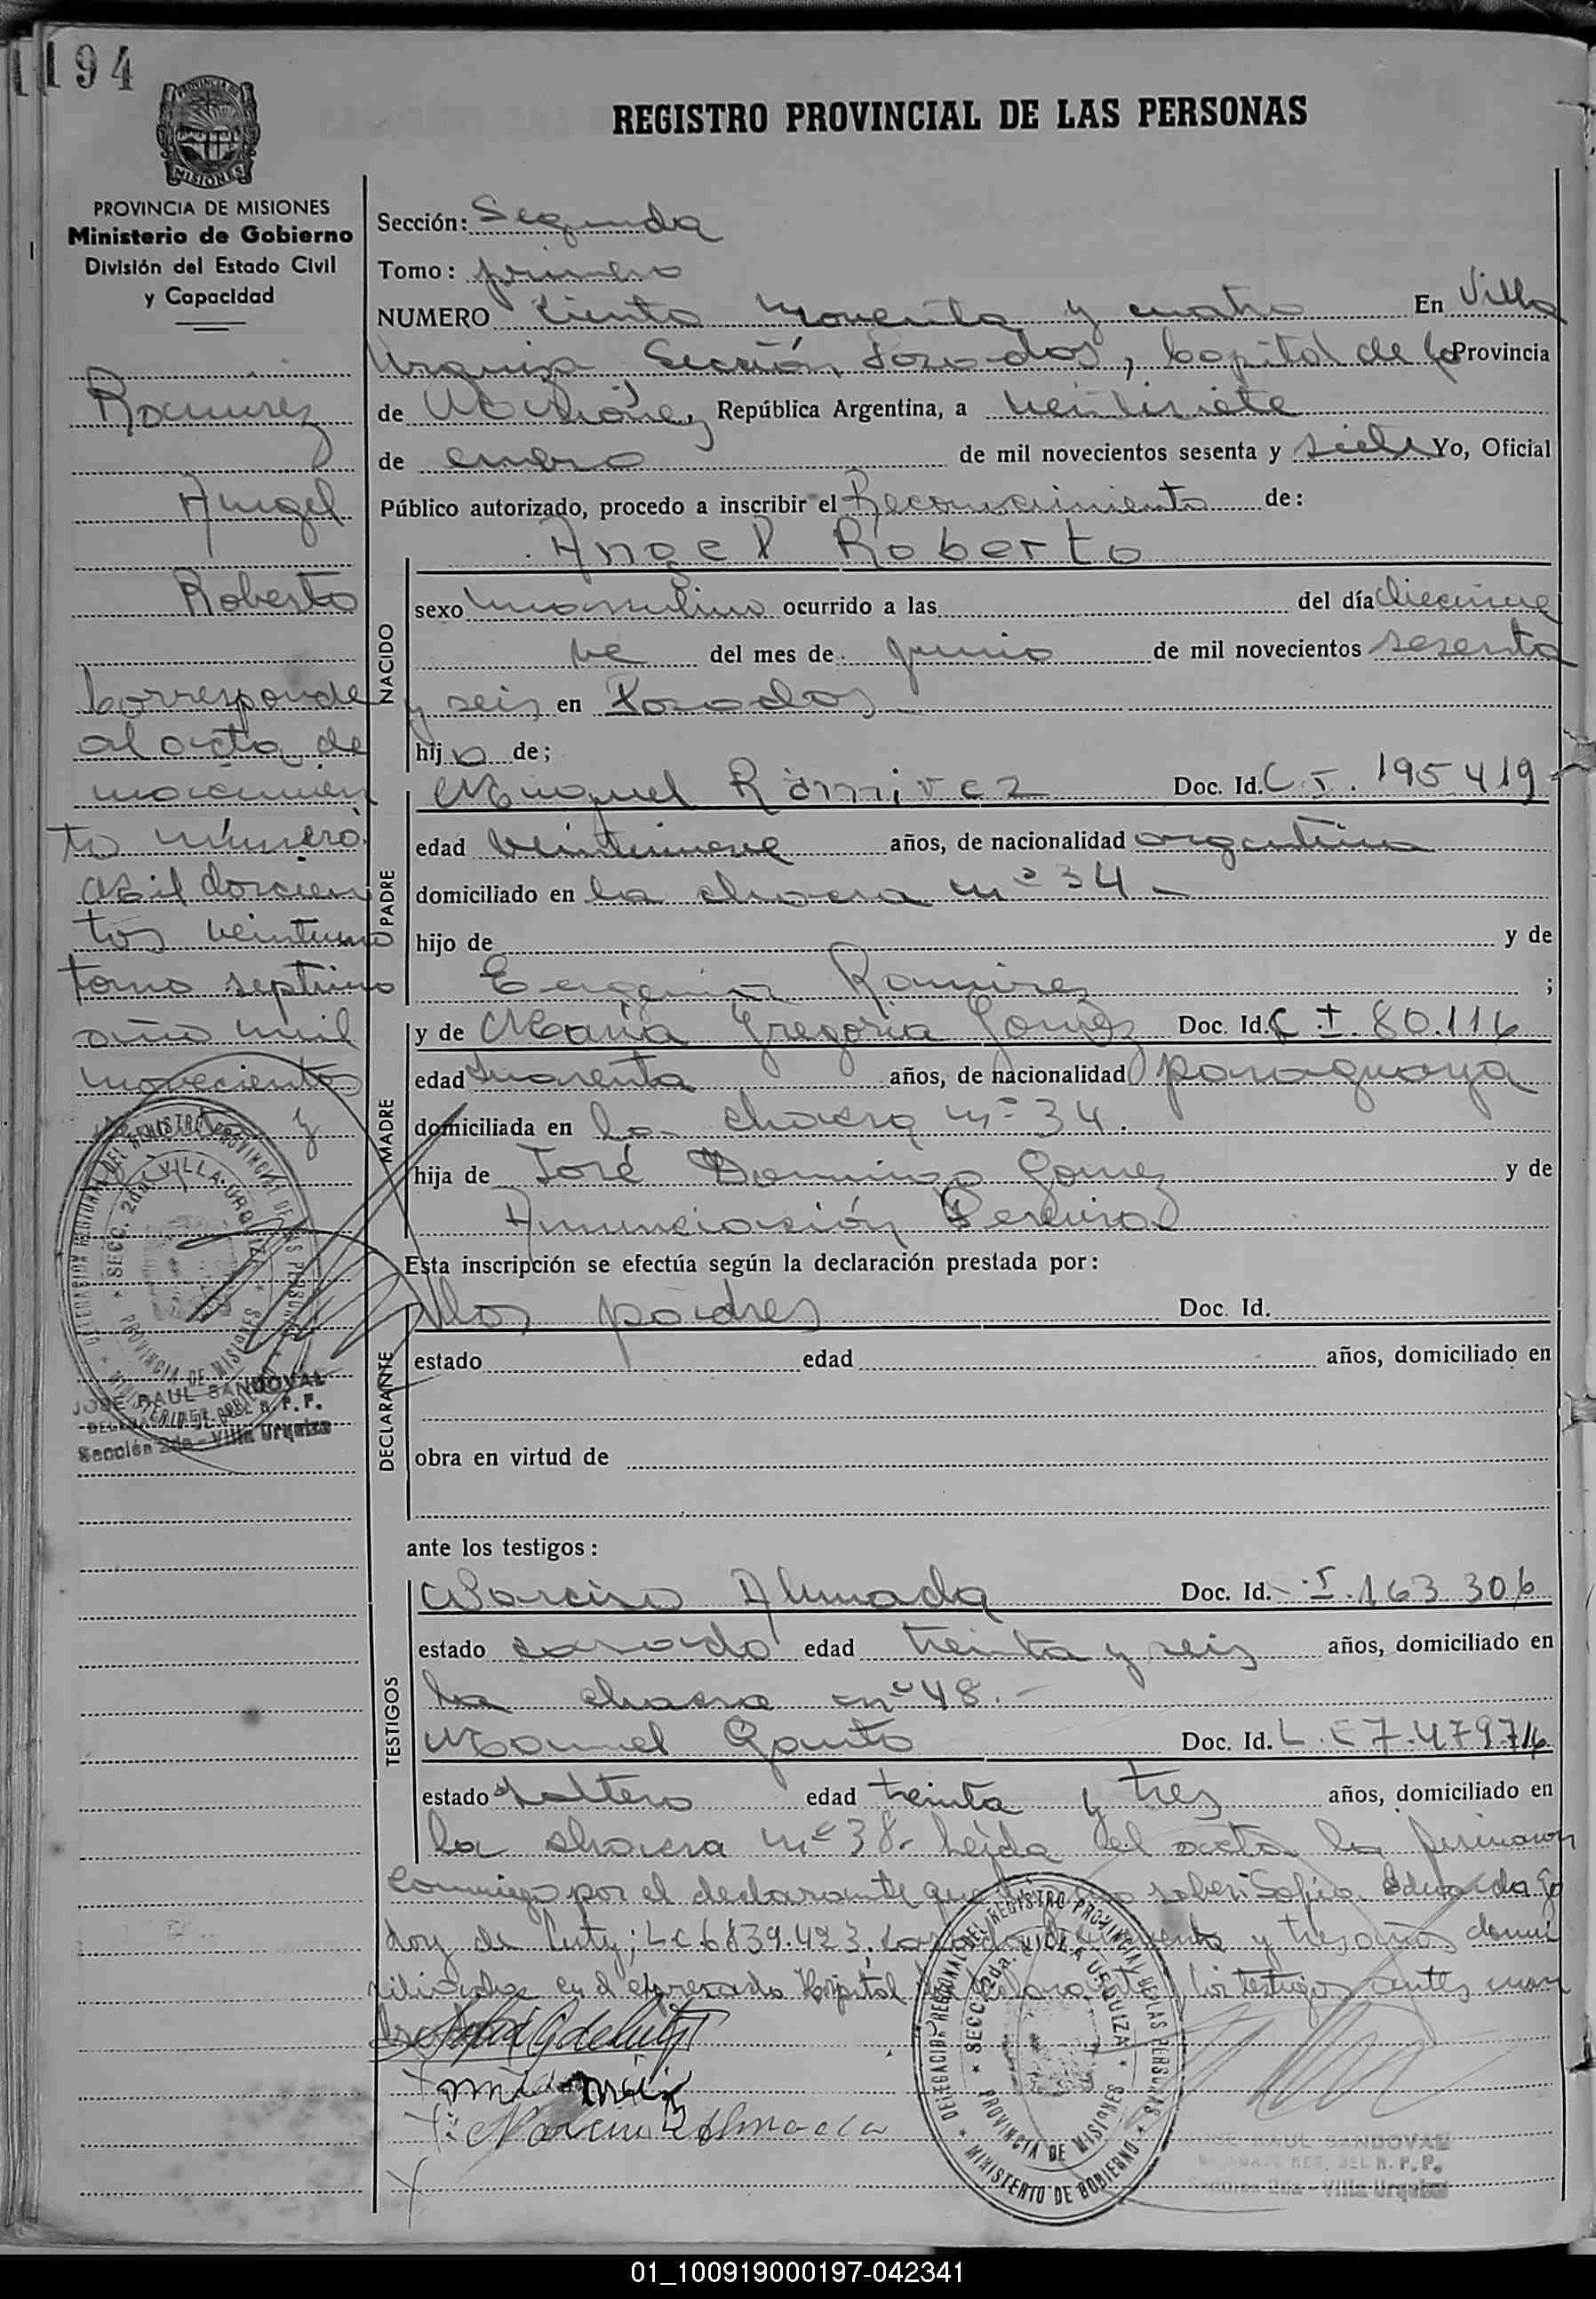 194
REGISTRO PROVINCIAL DE LAS PERSONAS
PROVINCIA DE MISIONES
Ministerio de Gobierno
División del Estado Civil
y Capacidad
Ramirez
Angel
Roberto
Corresponde
al acta de
nacimien
to número
Mil doscien
tos veintiuno
tomo septimo
año mil
novecientos
y
JOSE RAUL SANDOVAL
Sección 2da - Villa Urquiza
Sección: Segunda
Tomo: primero
NUMERO Ciento noventa y cuatro En Villa
Urquiza Sección Posadas, Capital de la Provincia
de Misiones República Argentina, a veintisiete
de enero de mil novecientos sesenta y siete Yo, Oficial
Público autorizado, procedo a inscribir el Reconocimiento de:
Angel Roberto
NACIDO
sexo masculino ocurrido a las del día diecinue
ve del mes de junio de mil novecientos sesenta
y seis en Posadas
hijo de;
PADRE
Miguel Ramirez Doc. Id. C.I. 195.419
edad veintinueve años, de nacionalidad argentina
domiciliado en la chacra nº 34 -
hijo de y de
Eugenia Ramirez ;
MADRE
y de Maria Gregoria Gomez Doc. Id. C I. 80.116
edad cuarenta años, de nacionalidad paraguaya
domiciliada en la chacra nº 34.
hija de José Domingo Gomez y de
Anunciación Pereira
Esta inscripción se efectúa según la declaración prestada por:
DECLARANTE
los padres Doc. Id.
estado edad años, domiciliado en
obra en virtud de
ante los testigos:
TESTIGOS
Narciso Almada Doc. Id. I. 163.306
estado casado edad treinta y seis años, domiciliado en
la chacra nº 48.-
Manuel Doc. Id. L. E 7.479.716
estado soltero edad treinta y tres años, domiciliado en
la chacra nº 38.- Leída el acta la firman
conmigo por el declarante que saber: Sofia Eduarda Go
doy de L.C 6.839.423, y tres años domi
ciliada en el expresado Hospital los testigos antes
Narciso Almada
DELEGACION REGIONAL DEL REGISTRO PROVINCIAL DE LAS PERSONAS
SECC. 2da. VILLA URQUIZA
PROVINCIA DE MISIONES
MINISTERIO DE GOBIERNO
JOSE RAUL SANDOVAL
REG. DEL R. P. P.
Sección 2da - Villa Urquiza
01_100919000197-042341